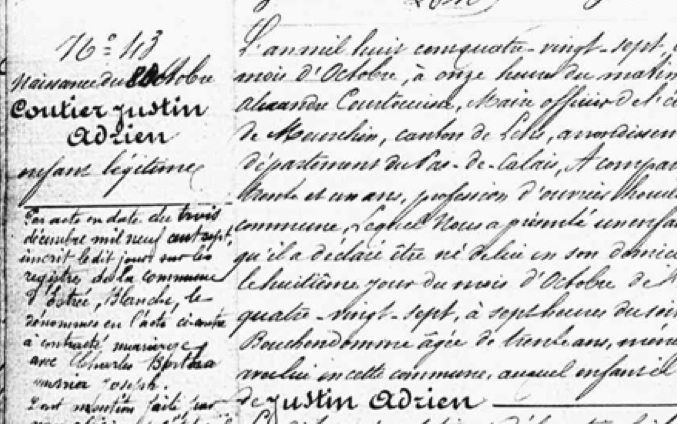 N° 43
Naissance du 8 Octobre
Coutier Justin
Adrien
enfant légitime
Par acte en date du trois
décembre mil neuf cent sept,
inscrit ledit jour sur les
registres de la commune
d'Estrée, Blanche, le
dénommé en l'acte ci-contre
à contracté mariage
avec Charles Bertha
Marie Joseph.
Dont mention faite par
L'an mil huit cent quatre-vingt-sept,
mois d'Octobre, à onze heures du matin
Alexandre Courtecuisse, Maire officier de l'é
de Meurchin, canton de Lens, arrondissem
département du Pas-de-Calais, A compar
trente et un ans, profession d'ouvrier houil
commune, Lequel Nous a présenté un enfan
qu'il a déclaré être né de lui en son domici
le huitième jour du mois d'Octobre de
quatre-vingt-sept, à sept heures du soir
Bouchendomme âgée de trente ans, mén
avec lui en cette commune, auquel enfant il
de Justin Adrien